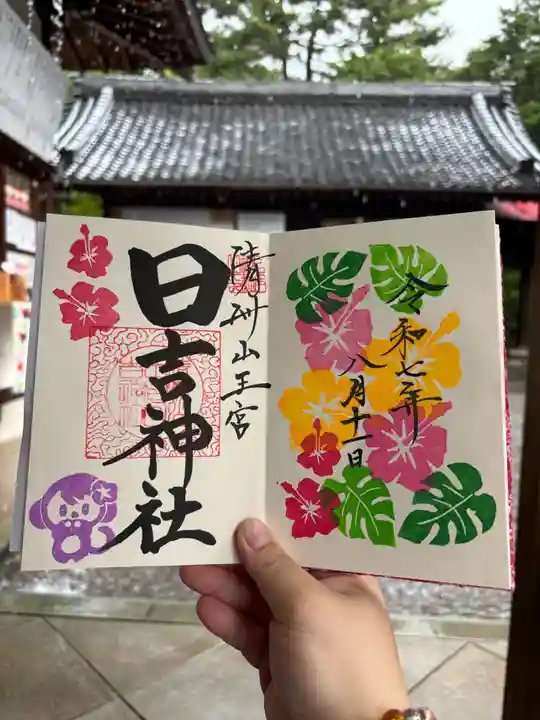 清州山王宮
日吉神社
令和七年
八月十一日